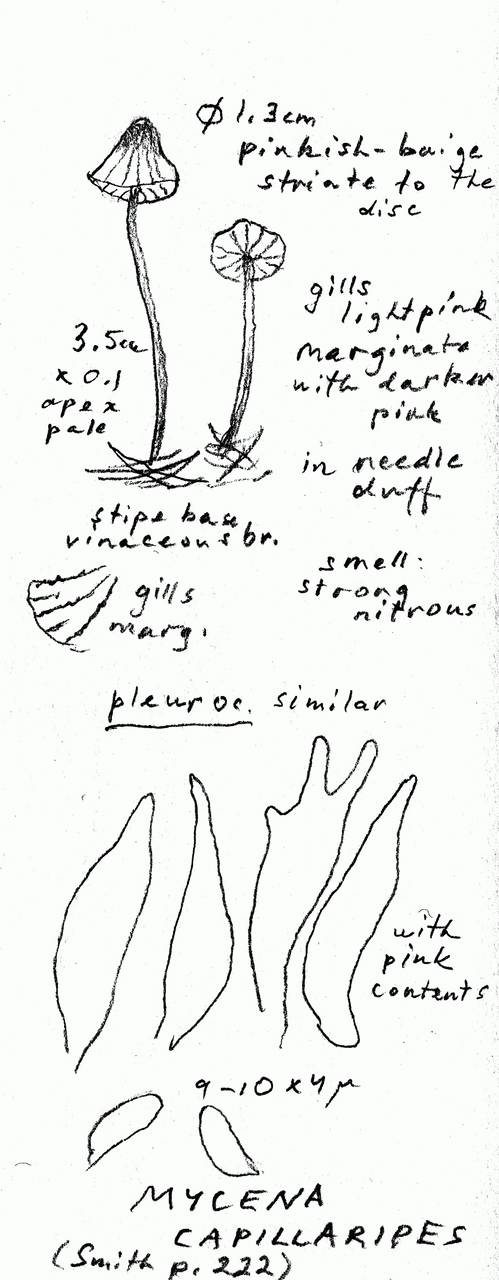 Ø 1.3cm
pinkish-baige
striate to the
disc
gills
lightpink
marginate
with darker
pink
3.5cm
x 0.1
apex
pale
in needle
duff
stipe base
vinaceous br.
smell:
strong
nitrous
gills
marg.
pleuroc. similar
with
pink
contents
9-10 x 4 µ
MYCENA
CAPILLARIPES
(Smith p. 222)